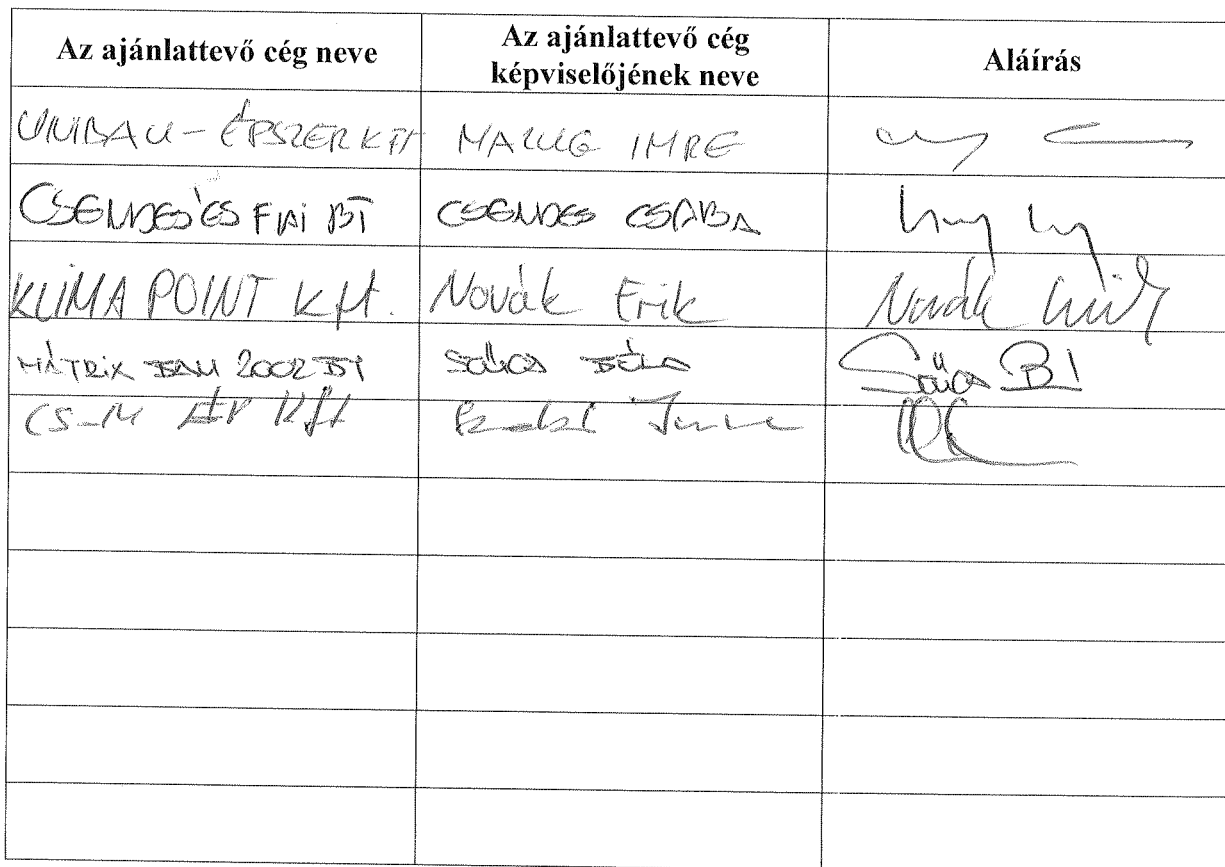 Az ajánlattevő cég neve
Az ajánlattevő cég
képviselőjének neve
Aláírás
UNIBAU-ÉPSZER KFT
IMRE
CSENDES ÉS FIAI BT
CSENDES CSABA
KLIMA POINT Kft.
Novák Erik
Novák Erik
MÁTRIX BAU 2002 BT
SZŰCS BÉLA
Szűcs Bl
CS-M ÉP Kft